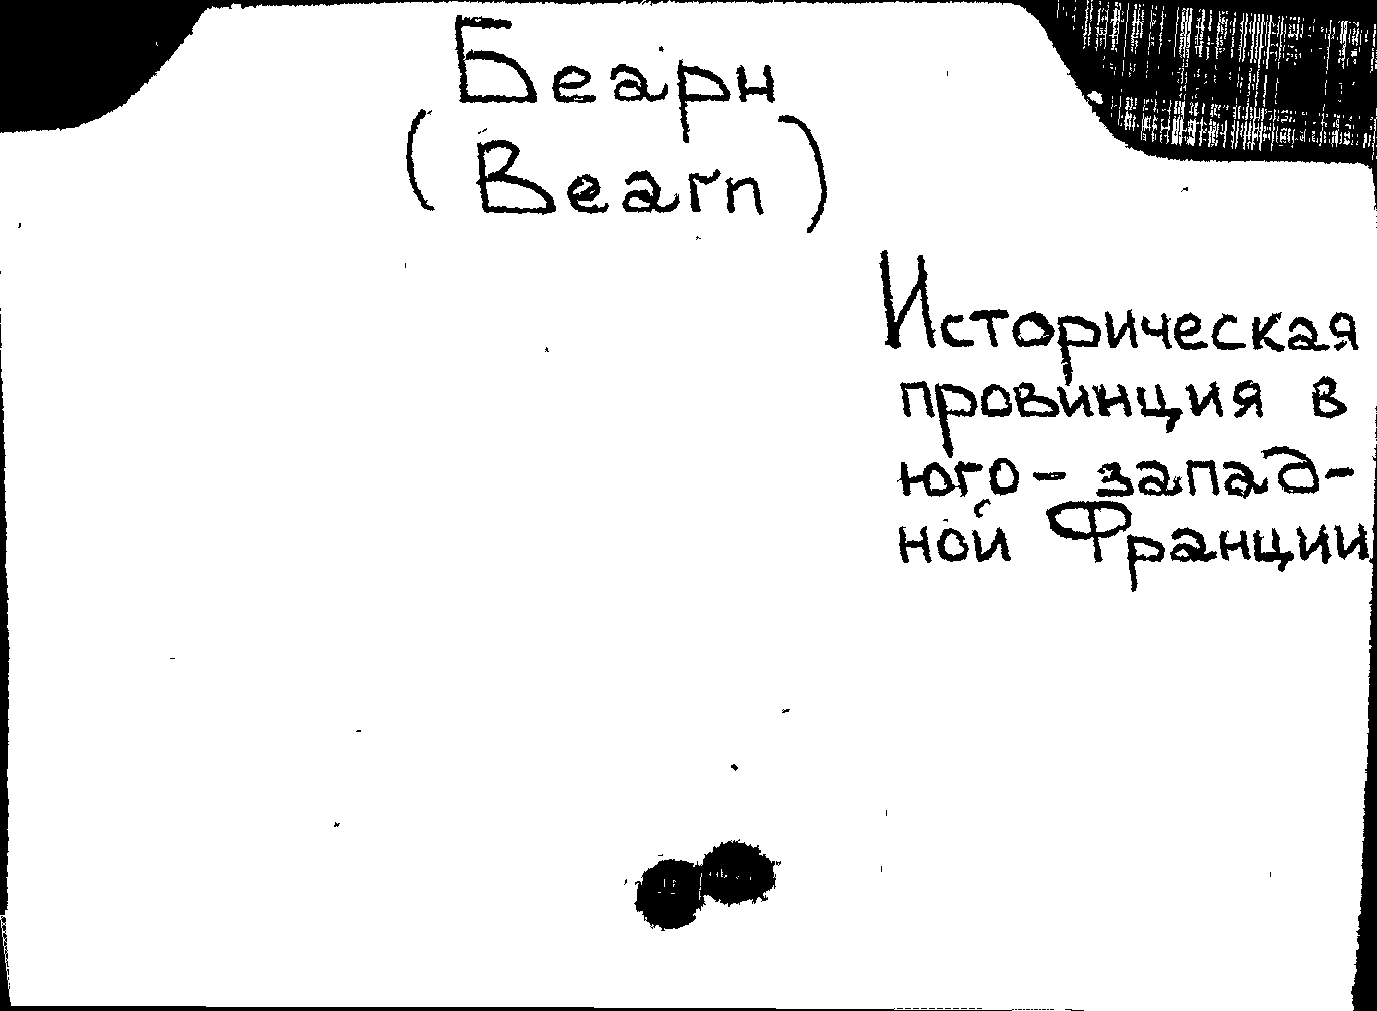 Беарн
(Bearn)
Историческая
провинция в
юго-запад-
ной Франции